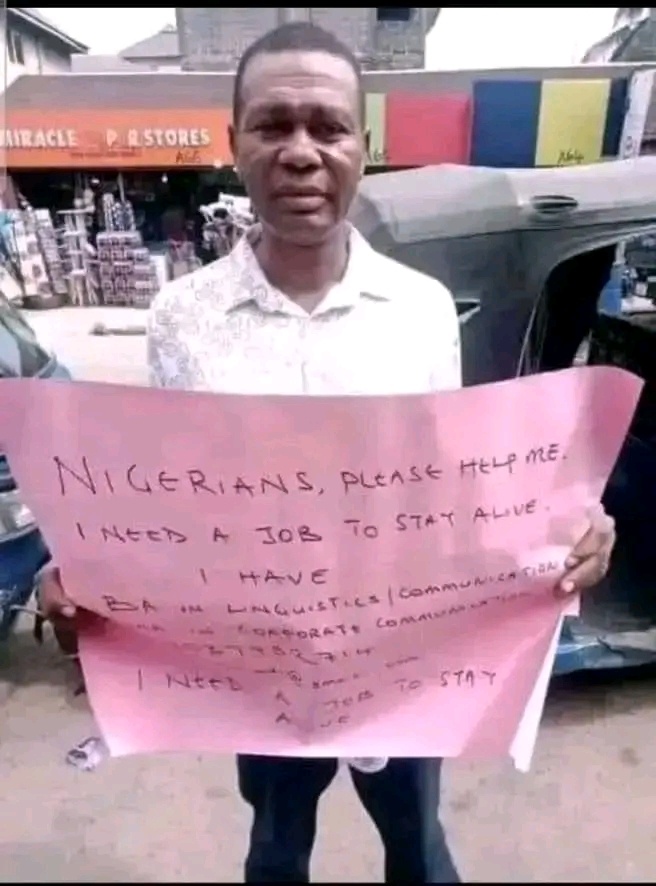 MIRACLE P R STORES
A66
NIGERIANS, PLEASE HELP ME.
I NEED A JOB TO STAY ALIVE.
I HAVE
BA IN LINGUISTICS/COMMUNICATION
IN CORPORATE COMMUNICATION
I NEED A JOB TO STAY